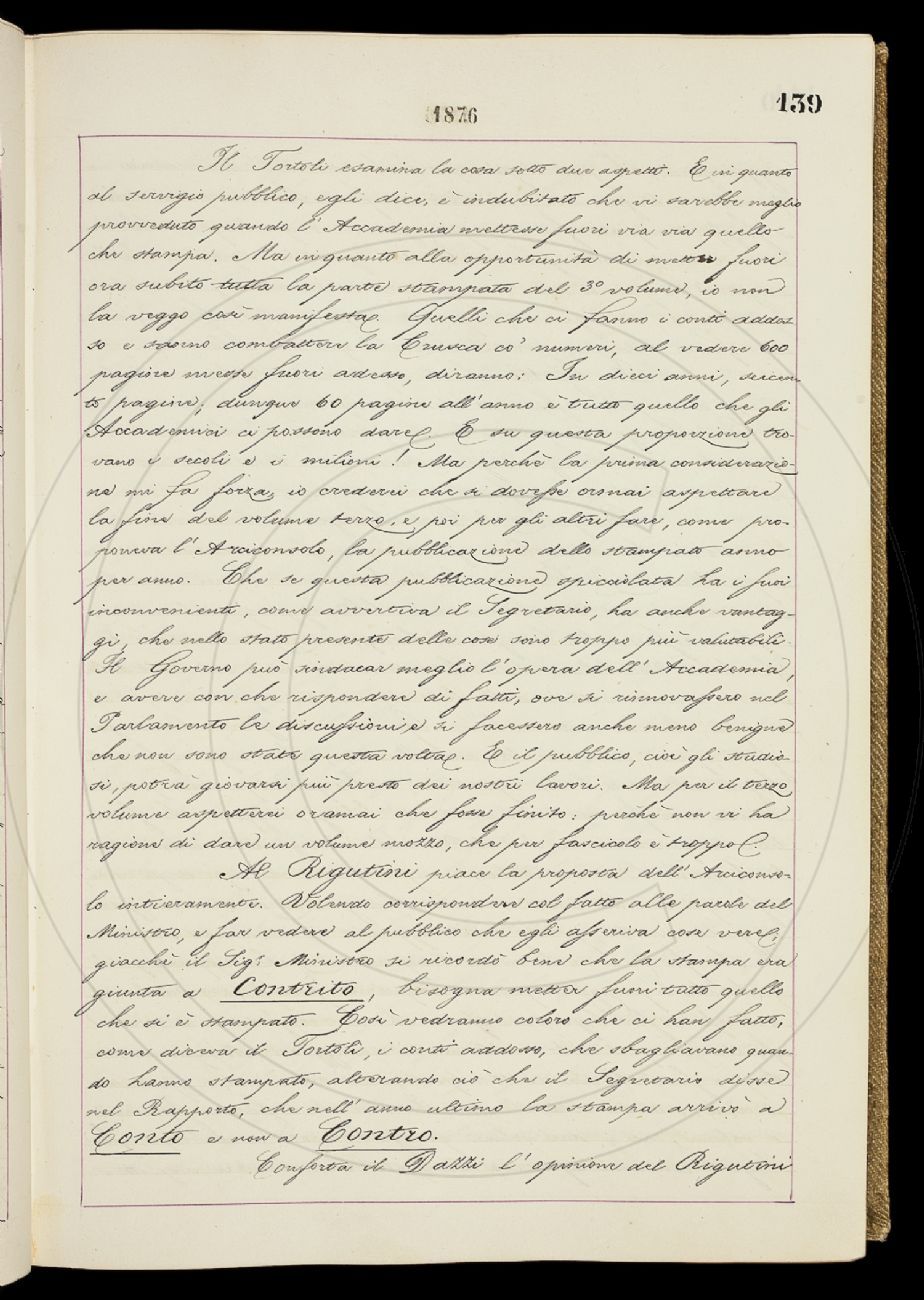 1876
139
Il Tortoli esamina la cosa sotto due aspetti. E in quanto
al servigio pubblico, egli dice, è indubitato che vi sarebbe meglio
provveduto quando l'Accademia mettesse fuori via via quello
che stampa. Ma in quanto alla opportunità di metter fuori
ora subito tutta la parte stampata del 3º volume, io non
la veggo così manifesta. Quelli che ci fanno i conti addos
so e sanno combattere la Crusca co' numeri, al vedere 600
pagine messe fuori adesso, diranno: In dieci anni, seicen
to pagine; dunque 60 pagine all'anno è tutto quello che gli
Accademici ci possono dare. E su questa proporzione tro-
vano i secoli e i milioni! Ma perchè la prima considerazio-
ne mi fa forza, io crederei che si dovesse ormai aspettare
la fine del volume terzo, e poi per gli altri fare, come pro-
poneva l'Arciconsolo, la pubblicazione dello stampato anno
per anno. Che se questa pubblicazione spicciolata ha i suoi
inconvenienti, come avvertiva il Segretario, ha anche vantag-
gi, che nello stato presente delle cose sono troppo più valutabili.
Il Governo può sindacar meglio l'opera dell'Accademia,
e avere con che rispondere di fatti, ove si rinnovassero nel
Parlamento le discussioni, e si facessero anche meno benigne
che non sono state questa volta. E il pubblico, cioè gli studio-
si, potrà giovarsi più presto dei nostri lavori. Ma per il terzo
volume aspetterei oramai che fosse finito: perchè non vi ha
ragione di dare un volume mozzo, che per fascicolo è troppo.
Al Rigutini piace la proposta dell'Arciconso-
lo intieramente. Volendo corrispondere col fatto alle parole del
Ministro, e far vedere al pubblico che egli asseriva cose vere;
giacchè il Sigr Ministro si ricordò bene che la stampa era
giunta a Contrito, bisogna metter funi tutto quello
che si è stampato. Così vedranno coloro che ci han fatto,
come diceva il Tortoli, i conti addosso, che sbagliavano quan-
do hanno stampato, alterando ciò che il Segretario disse
nel Rapporto, che nell'anno ultimo la stampa arrivò a
Conto e non a Contro.
Conforta il Dazzi l'opinione del Rigutini